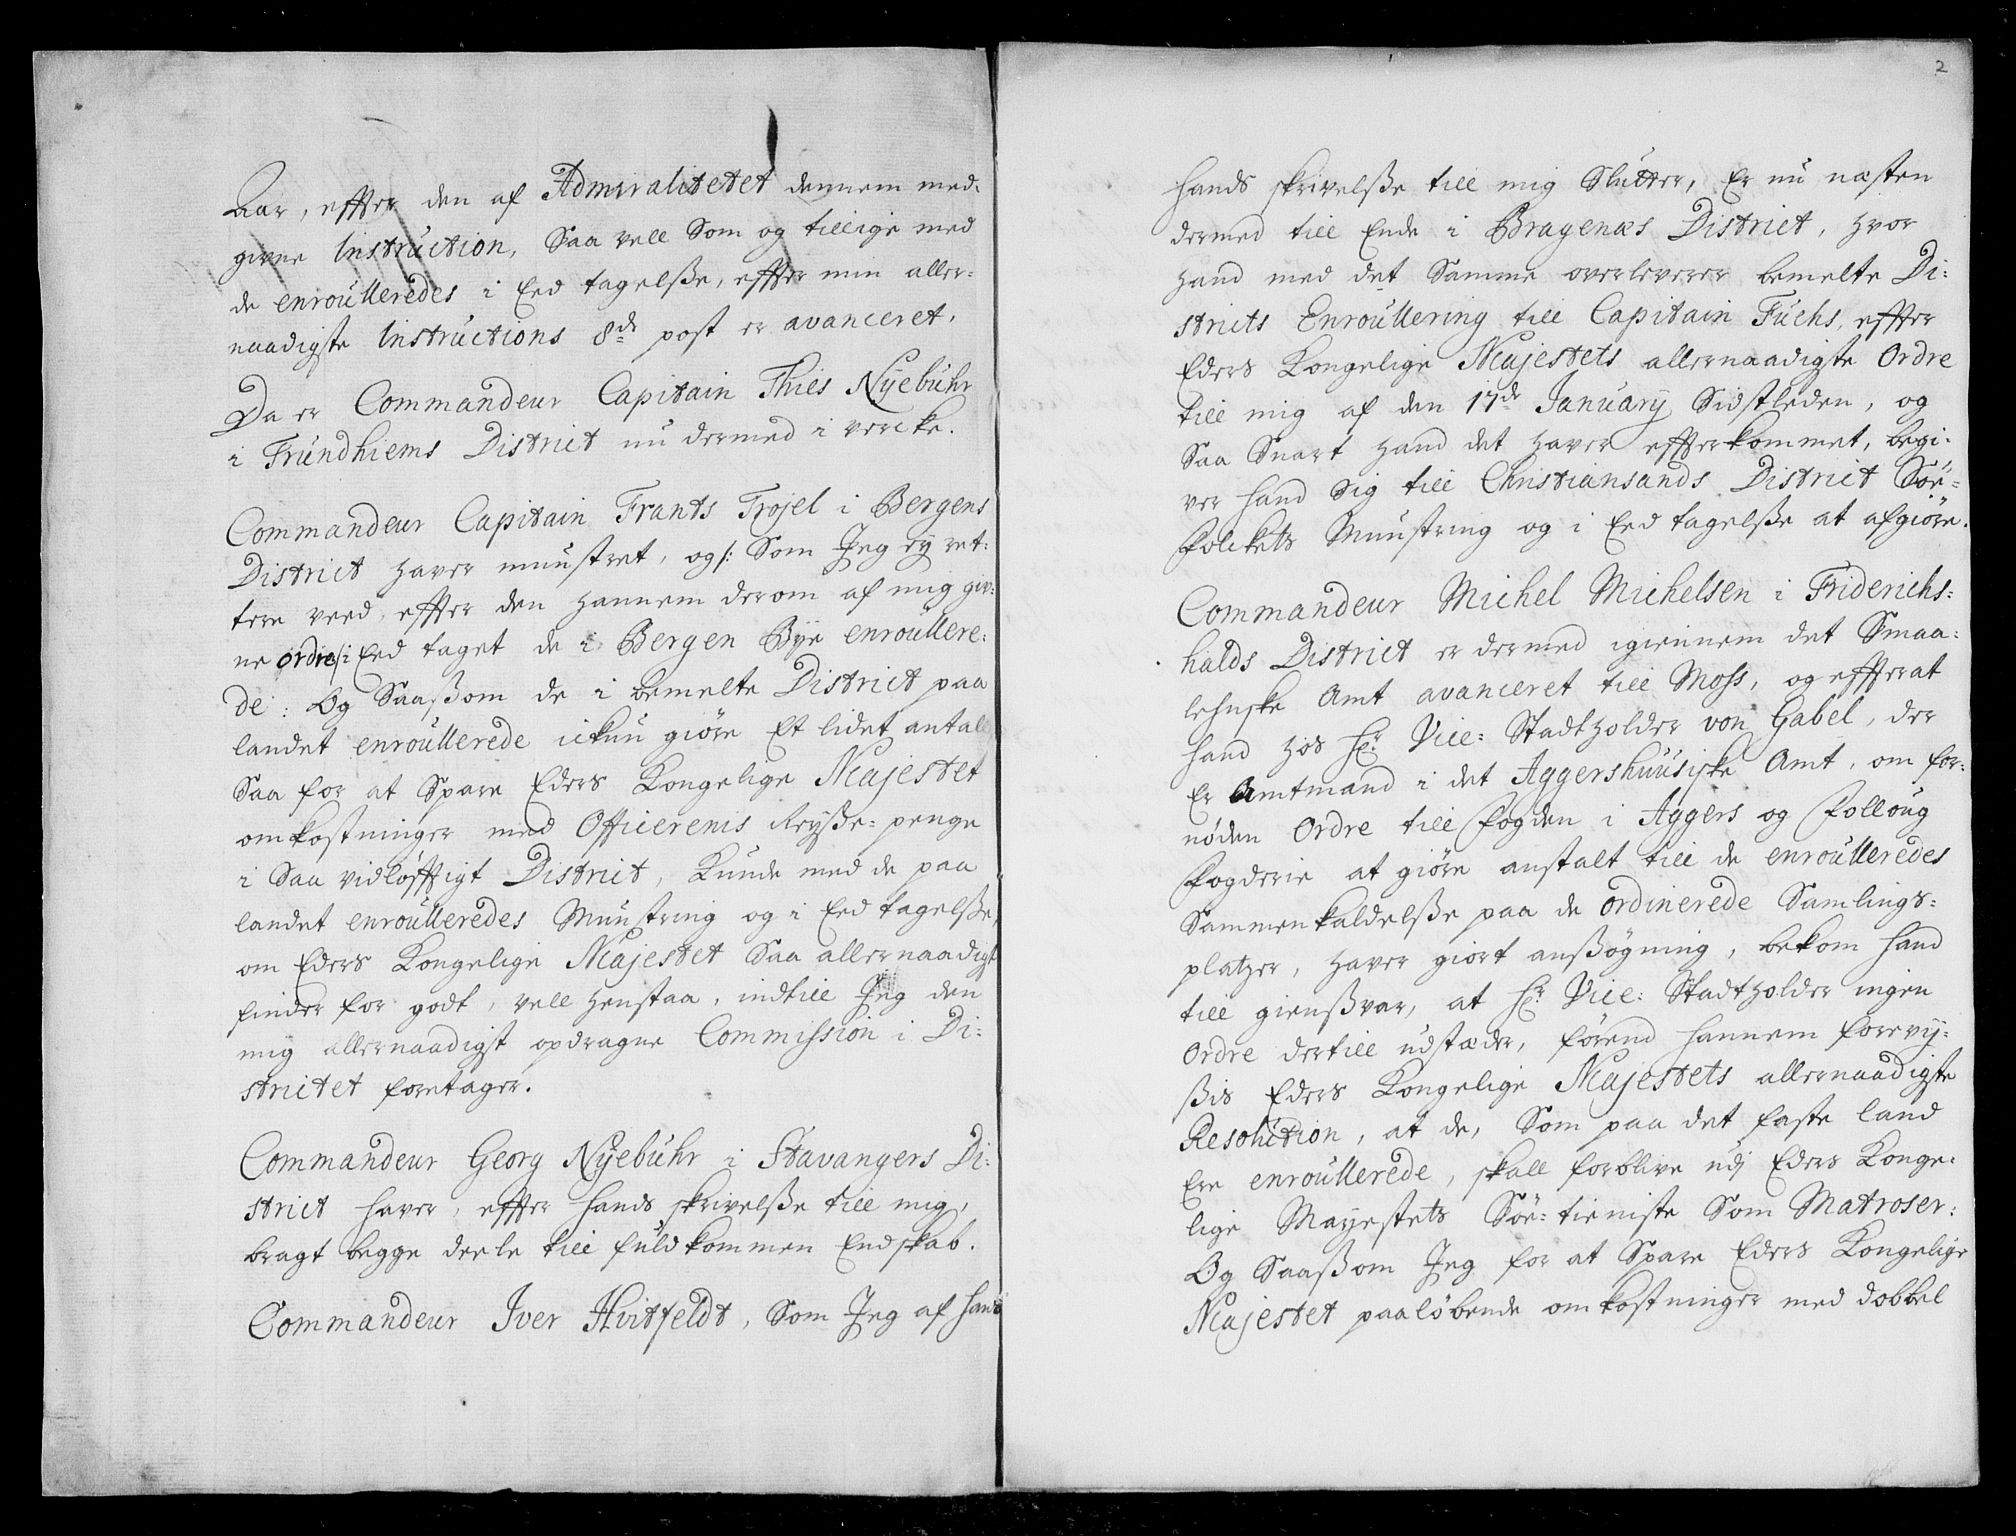 Aar, effter den af Admiralitetet dennem med-
givne Instruction, Saa vell Som og tillige med
de enroulleredes i Eed tagelsse, effter min aller-
naadigste Instructions 8de post er avanceret.
Da er Commandeur Capitain Thies Nÿebuhr
i Trundhiems District nu dermed i vercke.
Commandeur Capitain Frants Trojel i Bergens
District haver munstret, og /: Som Jeg ey ret-
tere veed, effter den hannem derom af mig giv-
ne ordre :/ i Eed taget de i Bergen Bye enroullere-
de: Og Saassom de i bemelte District paa
landet enroullerede ickun giøre Et lidet antall
Saa for at Spare Eders Kongelige Majestet
omkostninger med Officerenis Reysse-penge
i Saa vidløfftigt District, Kunde med de paa
landet enroulleredes Munstring og i Eed tagelsse,
om Eders Kongelige Majestet Saa allernaadigst
finder for godt, vell henstaa, indtill Jeg den
mig allernaadigst opdragne Commission i Di-
strictet foretager.
Commandeur Georg Nÿebuhr i Stavangers Di-
strict haver, effter hands skrivelsse till mig,
bragt begge deele till fuldkommen Endskab.
Commandeur Iver Hvitfeldt, Som Jeg af hans
2
hands skrivelsse till mig Slutter, Er nu næsten
dermed till Ende i Bragenæs District, hvor
hand med det Samme overleverer bemelte Di-
stricts Enroullering till Capitain Fuchs, effter
Eders Kongelige Majestets allernaadigste Ordre
till mig af den 17de Januarÿ Sidstleden, og
Saa Snart hand det haver effterkommet, begi-
ver hand Sig till Christiansands District Söe-
folckets Munstring og i Eed tagelsse at afgiöre.
Commandeur Michel Michelsen i Friderichs-
halds District er dermed igiennem det Smaa-
lehnske Amt avanceret till Moss, og effterat
hand hos Hr. Vice-Stadtholder von Gabel, der
Er Amtmand i det Aggershuusiske Amt, om for-
nöden Ordre till Fogden i Aggers og Folloug
Fogderie at giöre anstalt till de enroulleredes
Sammenkaldelsse paa de ordinerede Samlings-
platzer, haver giort anssögning, bekom hand
till gienssvar, at Hr. Vice-Stadtholder ingen
Ordre dertill udstæder, förend hannem forevÿ-
ssis Eders Kongelige Majestets allernaadigste
Resolution, at de, Som paa det faste land
Ere enroullerede, skall forblive udj Eders Konge-
lige Mayestets Söe-tieniste Som Matroser:
Og Saassom Jeg for at Spare Eders Kongelige
Majestet paalöbende omkostninger med dobbel